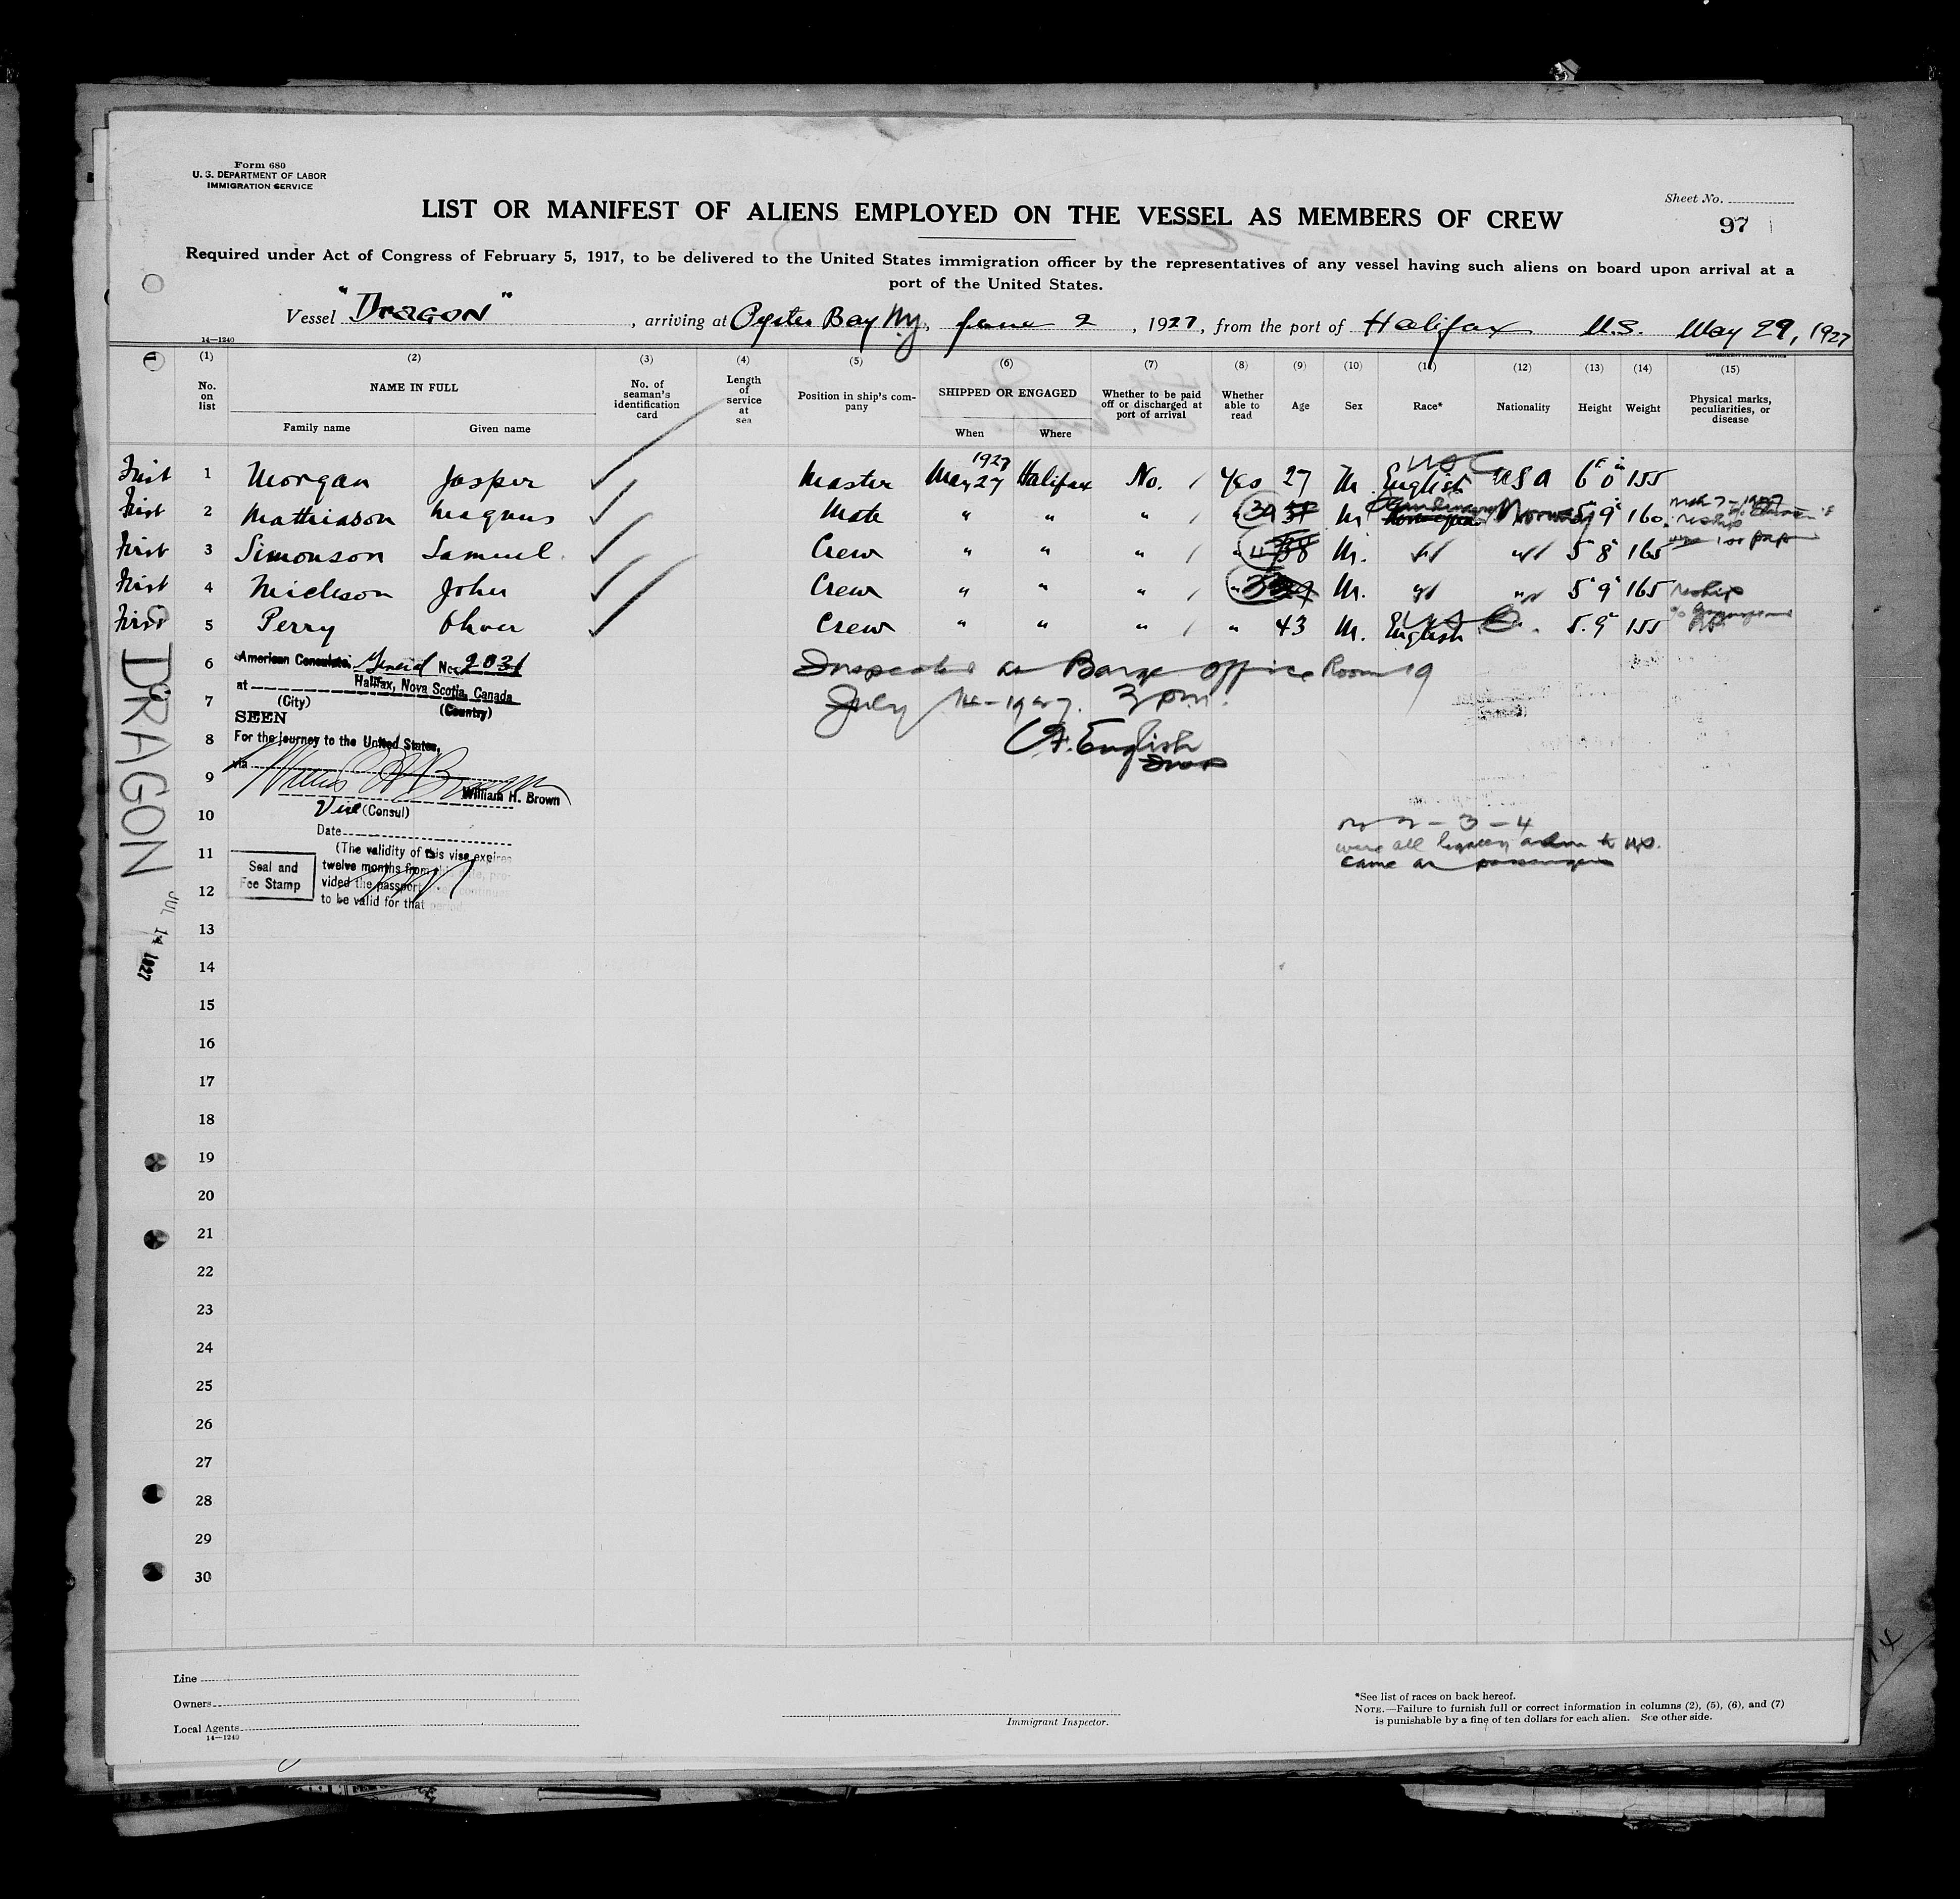 Form 680
U. S. DEPARTMENT OF LABOR
IMMIGRATION SERVICE
Sheet No.
97
LIST OR MANIFEST OF ALIENS EMPLOYED ON THE VESSEL AS MEMBERS OF CREW
Required under Act of Congress of February 5, 1917, to be delivered to the United States immigration officer by the representatives of any vessel having such aliens on board upon arrival at a
port of the United States.
Vessel "DRAGON", arriving at Oyster Bay N.y., June 2, 1927, from the port of Halifax N.S. May 29, 1927
14—1240
(1) (2) (3) (4) (5) (6) (7) (8) (9) (10) (11) (12) (13) (14) (15)
No. on list
NAME IN FULL
Family name
Given name
No. of seaman's identification card
Length of service at sea
Position in ship's company
SHIPPED OR ENGAGED
When
Where
Whether to be paid off or discharged at port of arrival
Whether able to read
Age
Sex
Race*
Nationality
Height
Weight
Physical marks, peculiarities, or disease
First 1 Morgan Jasper Master May 27 1927 Halifax No. Yes 27 M English USA 6' 0" 155
First 2 Mathiason Magnus Mate " " " " 39 37 M Scandinavian Norway 5' 9" 160 reship
First 3 Simonson Samuel Crew " " " " 38 M. " " 5' 8" 165
First 4 Nickson John Crew " " " " M. " " 5' 9" 165 reship
First 5 Perry Oliver Crew " " " " 43 M. English 5' 9" 155
6
7
8
9
10
11
12
13
14
15
16
17
18
19
20
21
22
23
24
25
26
27
28
29
30
American Consulate General No. 2031
at Halifax, Nova Scotia, Canada
(City) (Country)
SEEN
For the journey to the United States,
via
William H. Brown
Vice (Consul)
Date
(The validity of this visa expires
twelve months from this date, pro-
vided the passport continues
to be valid for that period.
Seal and
Fee Stamp
Inspected at Barge Office Room 19
July 14-1927. 3 pm.
English
Insp
2 - 3 - 4
were all legally adm to US.
came as passengers
DRAGON
JUL 14 1927
Line
Owners
Local Agents
14—1240
Immigrant Inspector.
*See list of races on back hereof.
NOTE.—Failure to furnish full or correct information in columns (2), (5), (6), and (7)
is punishable by a fine of ten dollars for each alien. See other side.
14